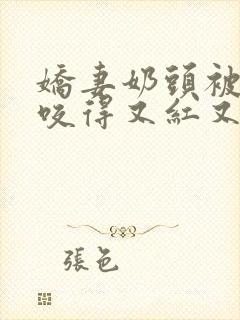 嬌妻奶頭被
咬得又紅又
張色